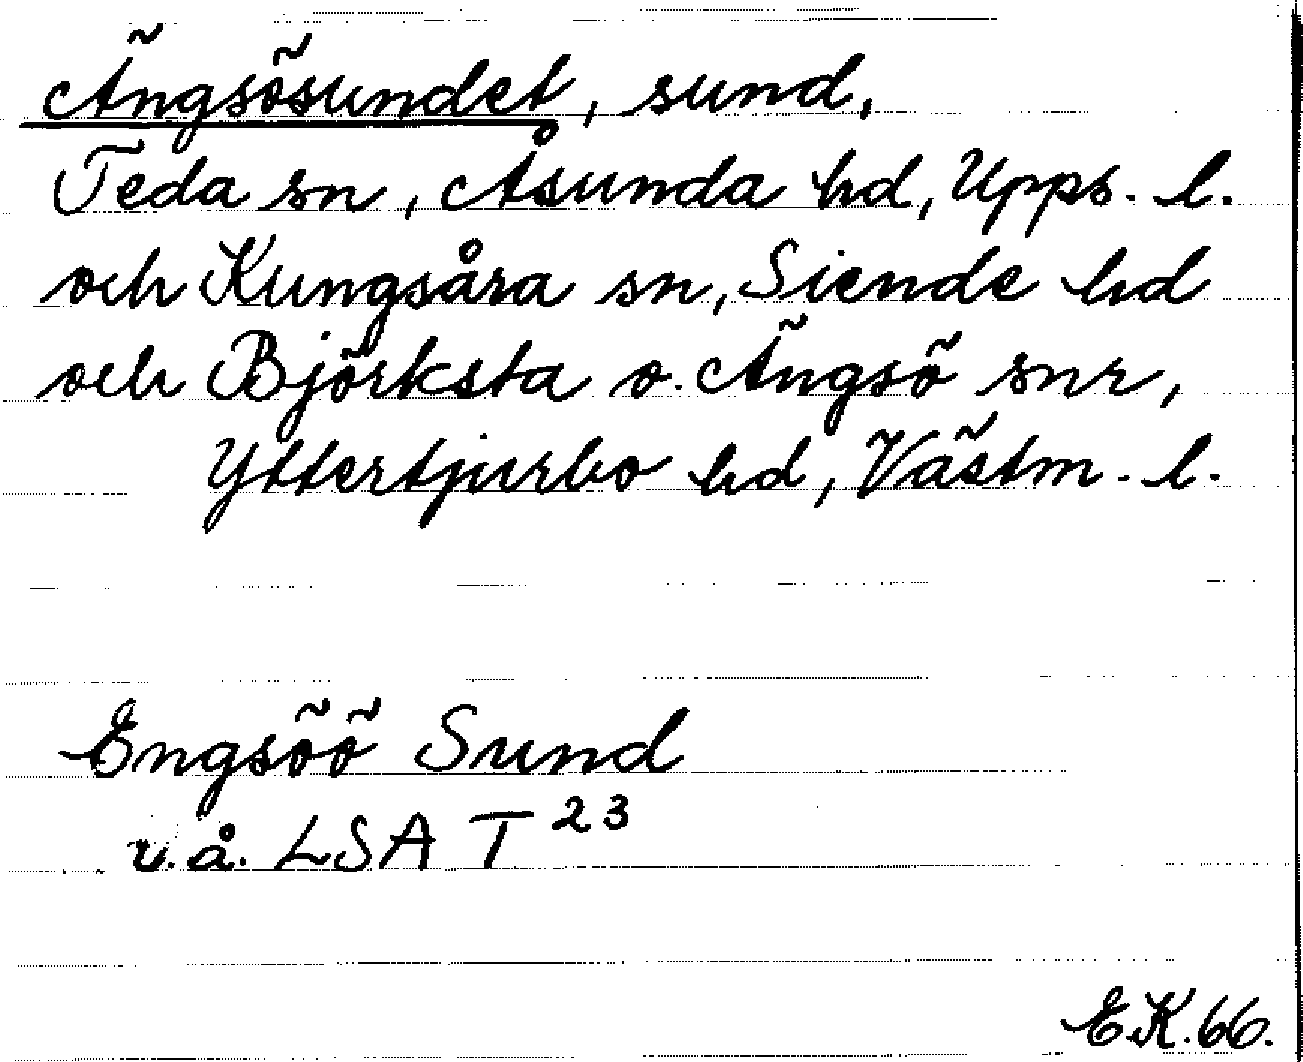 Ängsösundet, sund,
Teda sn, Åsunda hd, Upps. l.
och Kungsåra sn, Siende hd
och Björksta o. Ängsö snr,
Yttertjurbo hd, Västm. l.
Engsöö Sund
u.å. LSA T 23
E.K. 66.